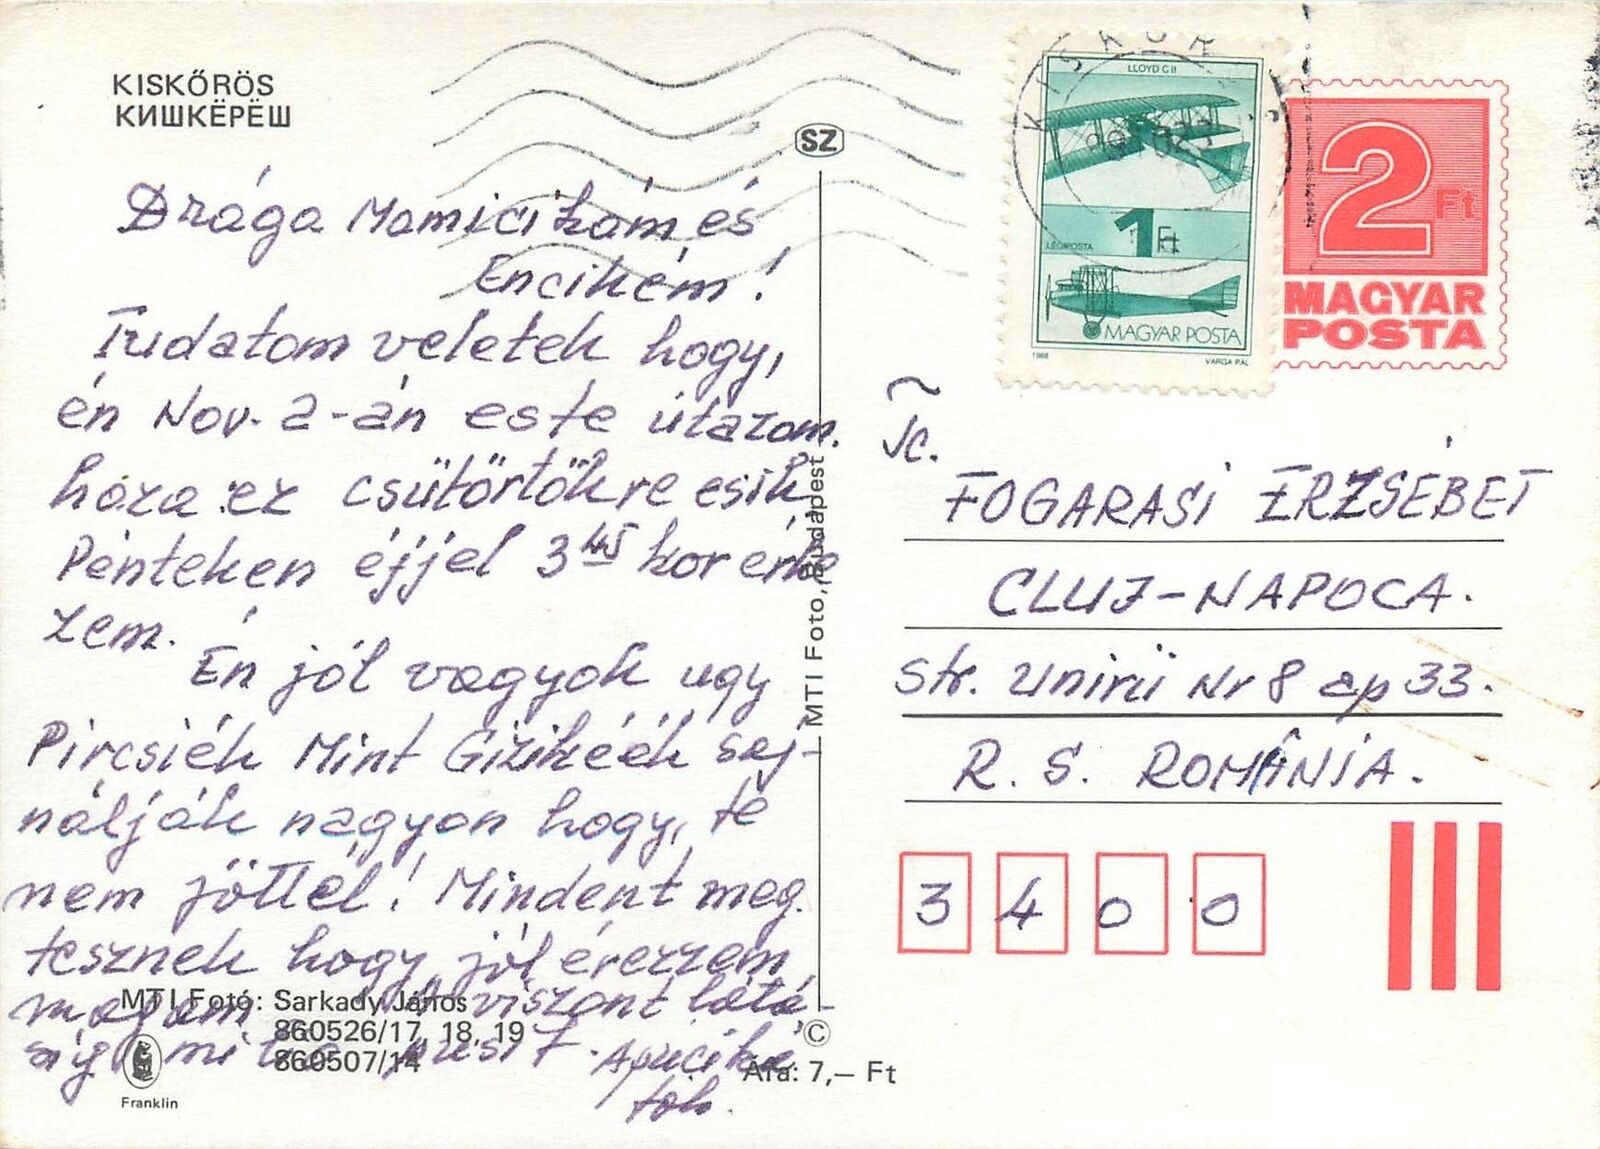 KISKŐRÖS
КИШКЁРЁШ
Drága Mamicikám és
Encikém!
Tudatom veletek hogy,
én Nov. 2-án este útazom
haza ez csütörtökre esik
Pénteken éjjel 3 45 kor érke
zem.
Én jól vagyok ugy
Pircsiék Mint Gizikéék saj-
nálják nagyon hogy, te
nem jöttél! Mindent meg-
tesznek hogy jól érezzem
magam viszont látá-
sig pusi
Apuciká
tok.
MTI Fotó: Sarkady János
860526/17, 18, 19
860507/14
Franklin
SZ
MTI Foto, Budapest
©
Ára: 7,— Ft
KISKŐR
LLOYD C II
1Ft
LÉGIPOSTA
MAGYAR POSTA
1988 VARGA PÁL
2 Ft
MAGYAR
POSTA
FOGARASI ERZSÉBET
CLUJ-NAPOCA.
Str. Unirii Nr 8 ap 33.
R. S. ROMÂNIA.
3 4 0 0